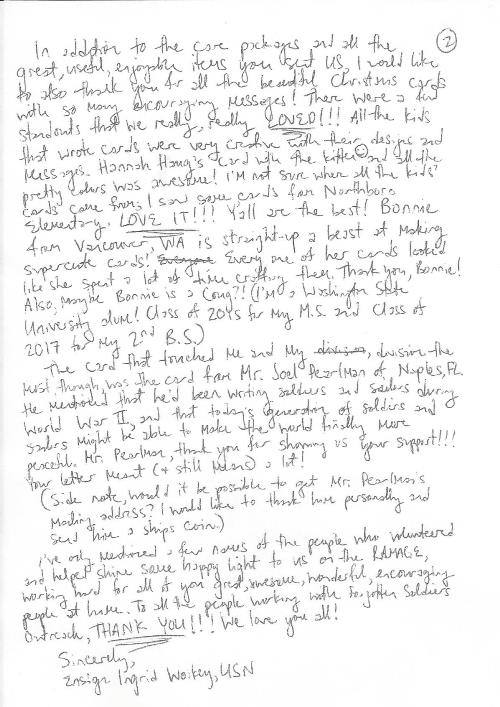 2
In addition to the care packages and all the
great, useful, enjoyable items you sent US, I would like
to also thank you for all the beautiful Christmas cards
with so many encouraging messages! There were a few
standouts that we really, really LOVED!!! All the kids
that wrote cards were very creative with their designs and
messages. Hannah Hong's card with the kitten and all the
pretty colors was awesome! I'm not sure where all the kids'
cards came from; I saw some cards from Northboro
Elementary. LOVE IT!!! Y'all are the best! Bonnie
from Vancouver, WA is straight-up a beast at making
supercute cards! Everyone Every one of her cards looked
like she spent a lot of time crafting them. Thank you, Bonnie!
Also, maybe Bonnie is a Coug?! (I'm a Washington State
University alum! Class of 2015 for my M.S. and Class of
2017 for my 2nd B.S.)
The card that touched me and my division, division the
most, though, was the card from Mr. Joel Pearlman of Naples, FL.
He mentioned that he'd been writing soldiers and sailors during
World War II, and that today's generation of soldiers and
sailors might be able to make the world finally more
peaceful. Mr. Pearlman, thank you for showing us your support!!!
Your letter meant (& still means) a lot!
(Side note, would it be possible to get Mr. Pearlman's
mailing address? I would like to thank him personally and
send him a ships coin.)
I've only mentioned a few names of the people who volunteered
and helped shine some happy light to us on the RAMAGE,
working hard for all of you great, awesome, wonderful, encouraging
people at home. To all the people working with Forgotten Soldiers
Outreach, THANK YOU!!! We love you all!
Sincerely,
Ensign Ingrid Woikey, USN